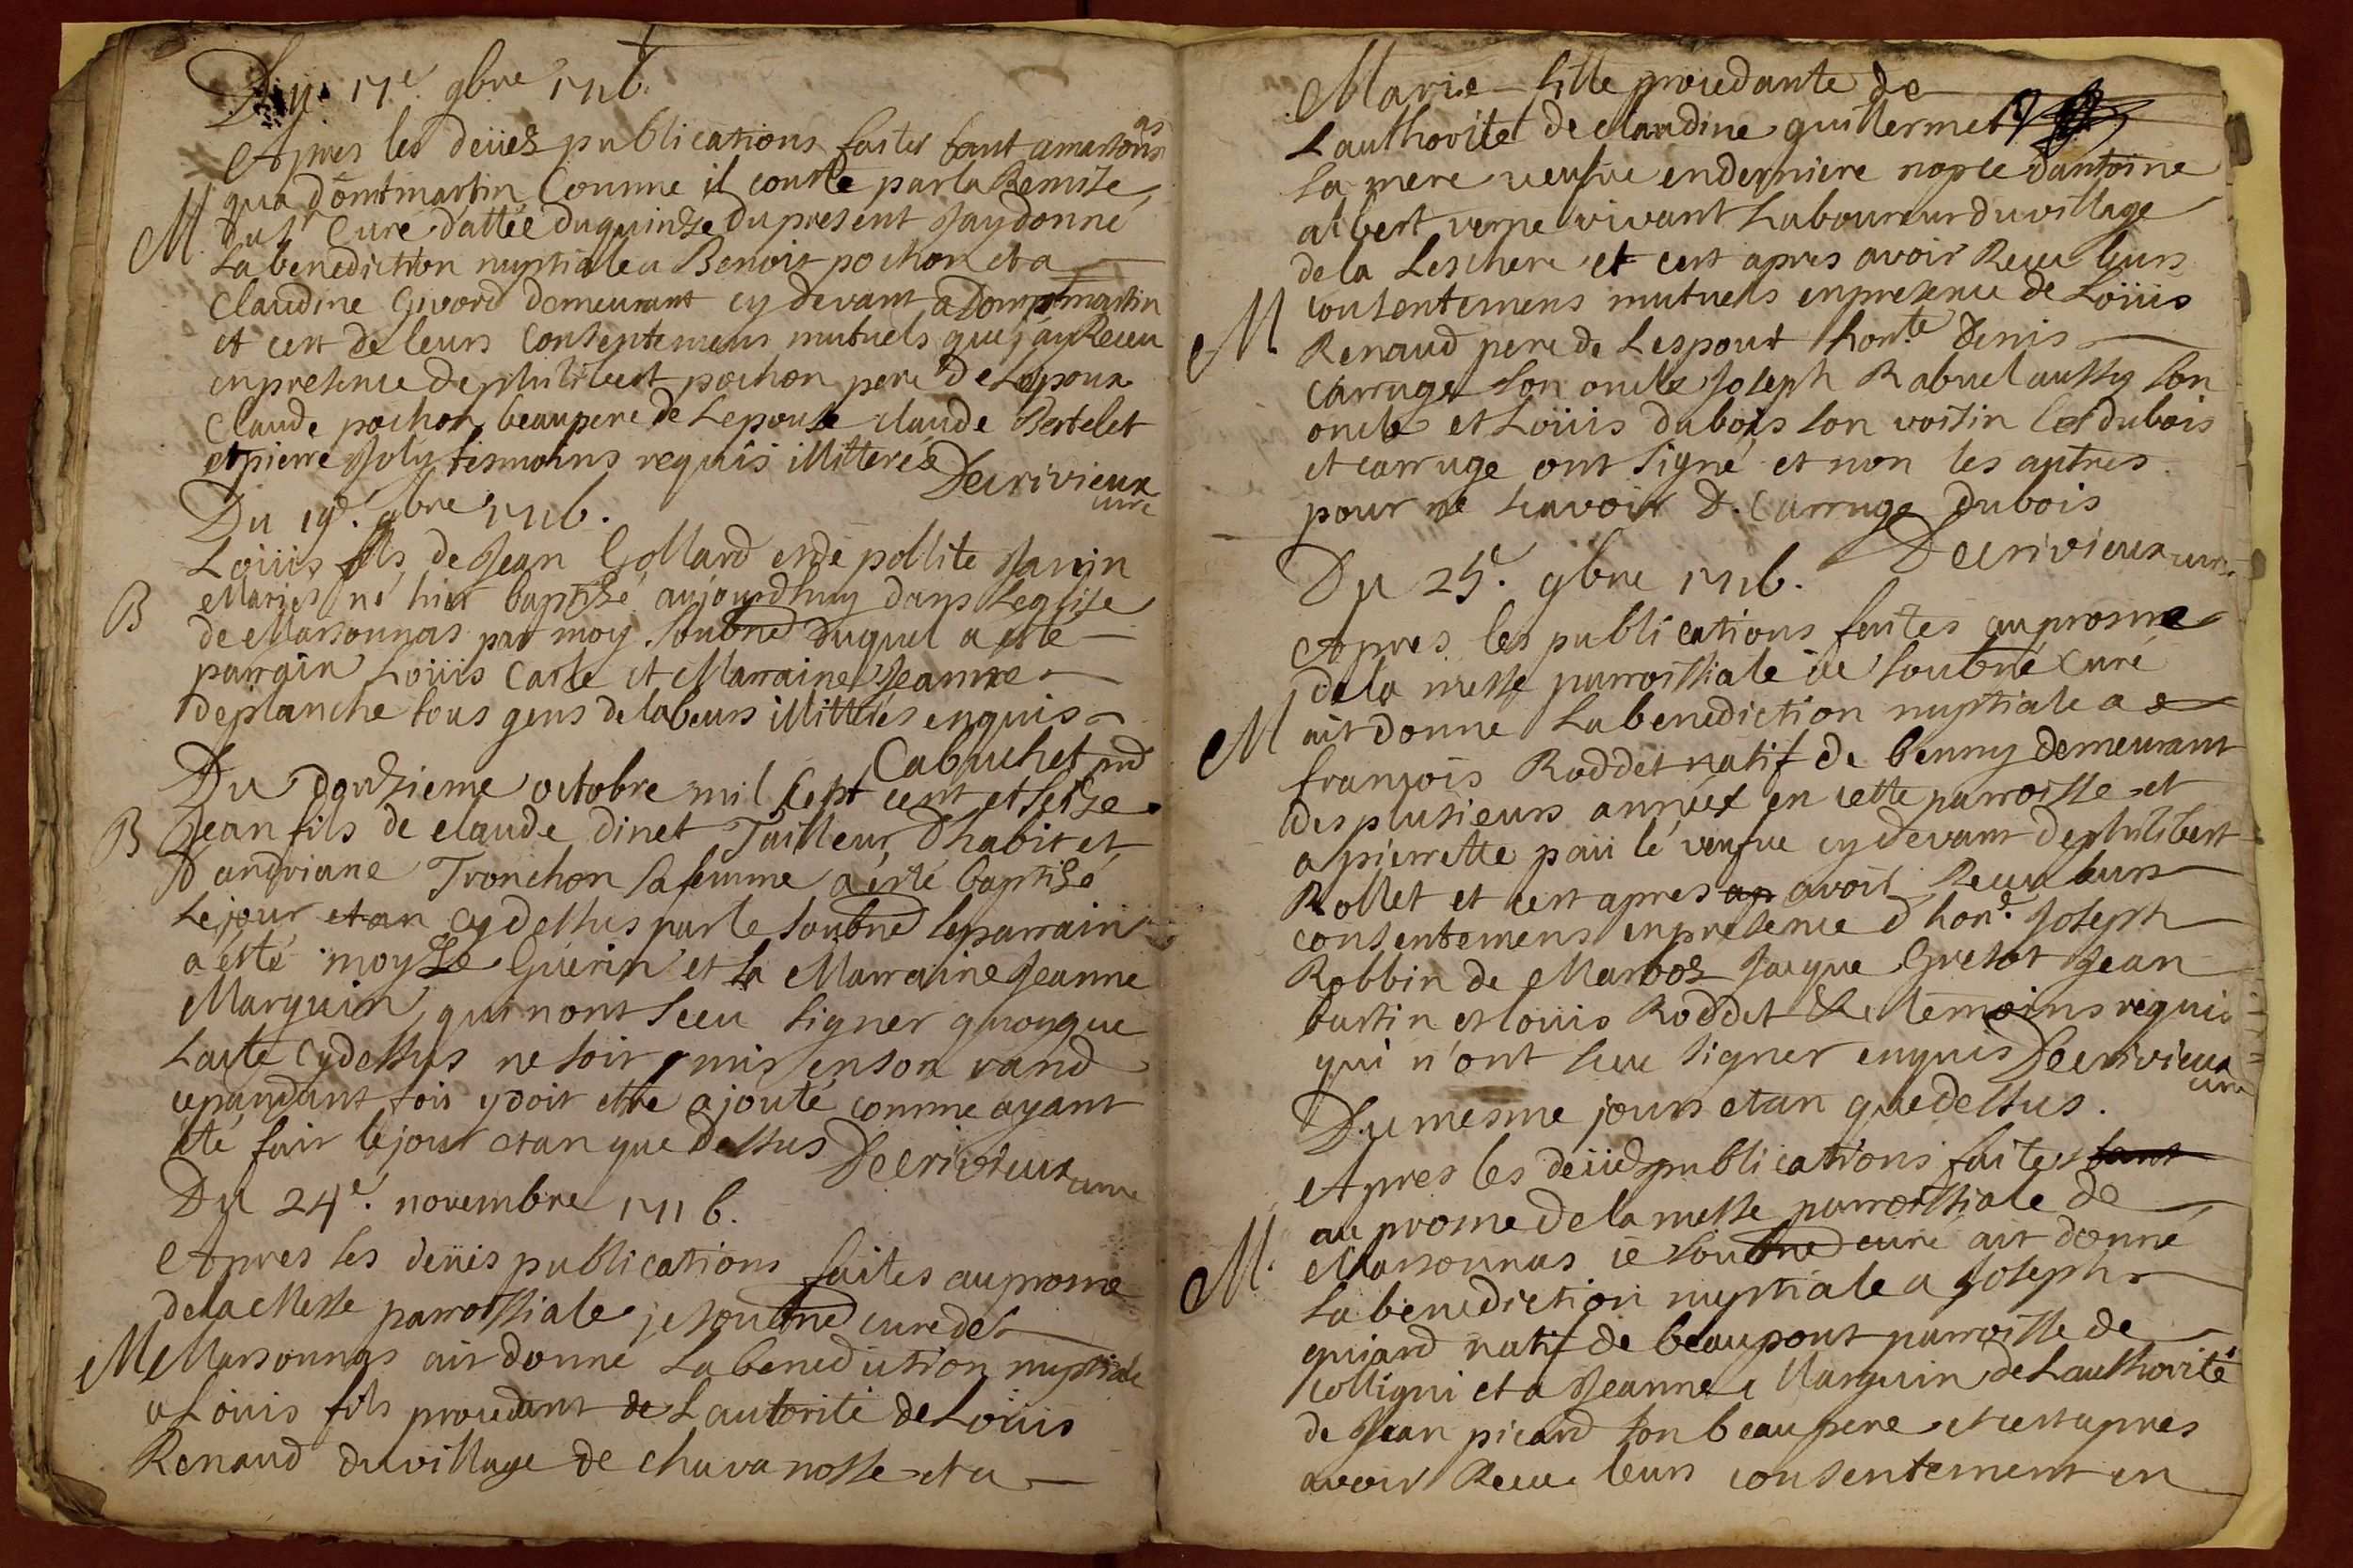 Du 17e. 9bre 1716.
Apres les deües publications faites tant amarsonnas
M qua domtmartin Comme il conste par la Remise
du Sr Curé dattée du quinze du present Jay donné
la benediction nuptiale a Benoit pochon et a
Claudine Gvord demeurant cy devant a Dompmartin
et cert de leurs Consentemens mutuels que j'ay Receu
en presence de philibert pochon pere de Lepoux
Claude pochon beaupere de Lepouse claude Bertelet
et pierre Joly tesmoins requis illitterés Decrivieux
curé
Du 19e. 9bre 1716.
Loüis fils de Jean Gollard et de pollite Janin
B Mariés né hier baptizé aujourdhuy dans Leglise
de Marsonnas par moy soubné duquel a esté
parrain Loüis Carle et Marraine Jeanne
deplanche tous gens de labeurs illitterés enquis
Cabuchet
Du douzieme octobre mil sept cent et seize.
B Jean fils de claude dinet Tailleur dhabit et
dandriane Tronchon sa femme a esté baptizé
le jour et an cy dessus par le soubné le parrain
a esté moyse Guerin et la Marraine Jeanne
Marguin qui nont sceu signer quoyque
Lacte cy dessus ne soit mis en son rand
cepandant fois y doit etre ajouté comme ayant
eté fait le jour et an que dessus Decrivieux curé
Du 24e. novembre 1716.
Apres les deües publications faites au prosne
de la Messe parroissiale je soubné curé de
M Marsonnas ait donné La benediction nuptiale
a Loüis fils procedant de Lautorité de Loüis
Renaud du village de chavanosse et a
Marie fille procedante de
Lauthorité de claudine guillermet
sa mere veufve en derniere nopce dantoine
albert verne vivant Laboureur du village
de la Leschere et cert apres avoir Receu leurs
consentemens mutuels en presence de Loüis
M Renaud pere de Lespoux hon.te Denis
Carruge son oncle Joseph Rabuel aussy son
oncle et Loüis dubois son voisin les dubois
et carruge ont signé et non les autres
pour ne scavoir D. Carruge Dubois
Decrivieux curé
Du 25e. 9bre 1716.
Apres les publications faites au prosne
de la messe parroissiale je soubné Curé
M ait donné La benediction nuptiale a
françois Roddet natif de benny demeurant
des plusieurs années en cette parroisse et
a pierrette paü lé veufve cy devant de philibert
Rollet et cert apres ap avoir Receu leurs
consentemens en presence d hon.e Joseph
Robbin de Marboz Jacque Grelot Jean
bartin et loüis Roddet temoins requis
qui n'ont sceu signer enquis Decrivieux
curé
Du mesme jours et an que dessus.
Apres les deües publications faites tant
au prosne de la messe parroissiale de
M. Marsonnas je soubné curé ait donné
La benediction nuptiale a Joseph
guiard natif de beaupont parroisse de
colligni et a Jeanne Marguin de Lauthorité
de Jean picard son beaupere et cert apres
avoir Receu leurs consentement en